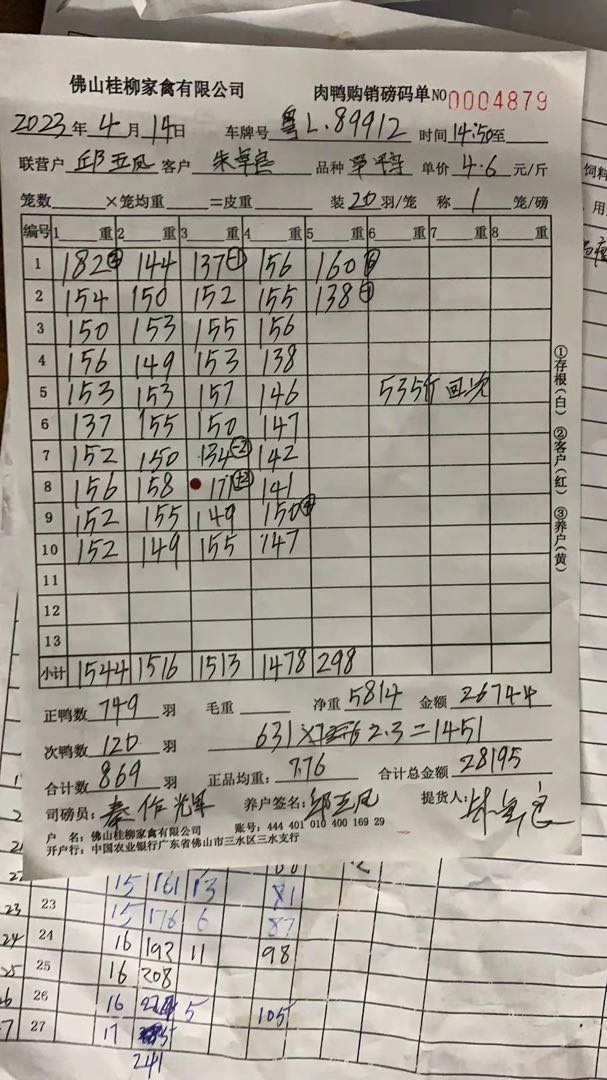 佛山桂柳家禽有限公司 肉鸭购销磅码单 NO 0004879
2023年 4 月 14 日 车牌号 粤L.89912 时间 14:50 至
联营户 邱五凤 客户 品种 单价 4.6 元/斤
笼数 ×笼均重 =皮重 装 20 羽/笼 称 1 笼/磅
编号 1 重 2 重 3 重 4 重 5 重 6 重 7 重 8 重
1 182 144 137 156 160
2 154 150 152 155 138
3 150 153 155 156
4 156 149 153 138
5 153 153 157 146 535斤 回次
6 137 155 150 147
7 152 150 134 -2 142
8 156 158 171 +2 141
9 152 155 149 150
10 152 149 155 147
11
12
13
小计 1544 1516 1513 1478 298
正鸭数 749 羽 毛重 净重 5814 金额 26744
次鸭数 120 羽 631 × 2.3 = 1451
合计数 869 羽 正品均重: 7.76 合计总金额 28195
司磅员: 秦作光军 养户签名: 邱五凤 提货人:
户 名: 佛山桂柳家禽有限公司 账号: 444 401 010 400 169 29
开户行: 中国农业银行广东省佛山市三水区三水支行
①存根(白) ②客户(红) ③养户(黄)
饲料
用
15 161 13 81
23 23 15 176 6 87
24 24 16 192 11 98
25 25 16 208
26 26 16 5 105
27 27 17
241